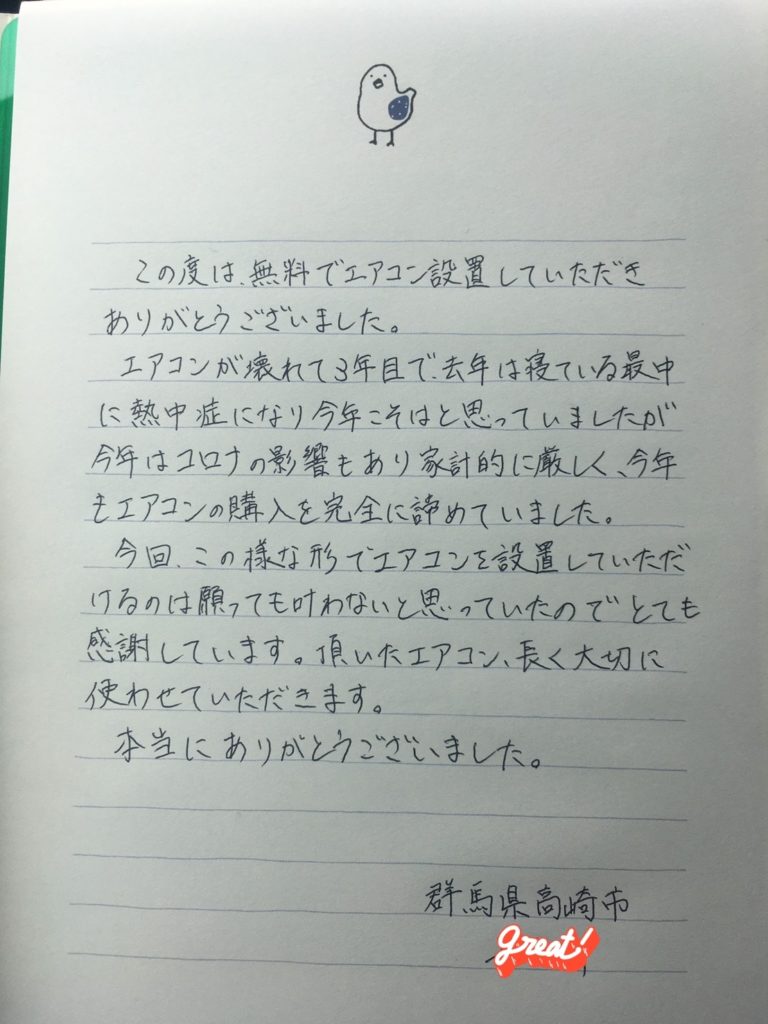 この度は、無料でエアコン設置していただき
ありがとうございました。
エアコンが壊れて3年目で、去年は寝ている最中
に熱中症になり今年こそはと思っていましたが
今年はコロナの影響もあり家計的に厳しく、今年
もエアコンの購入を完全に諦めていました。
今回、この様な形でエアコンを設置していただ
けるのは願っても叶わないと思っていたのでとても
感謝しています。頂いたエアコン、長く大切に
使わせていただきます。
本当にありがとうございました。
群馬県高崎市
great!